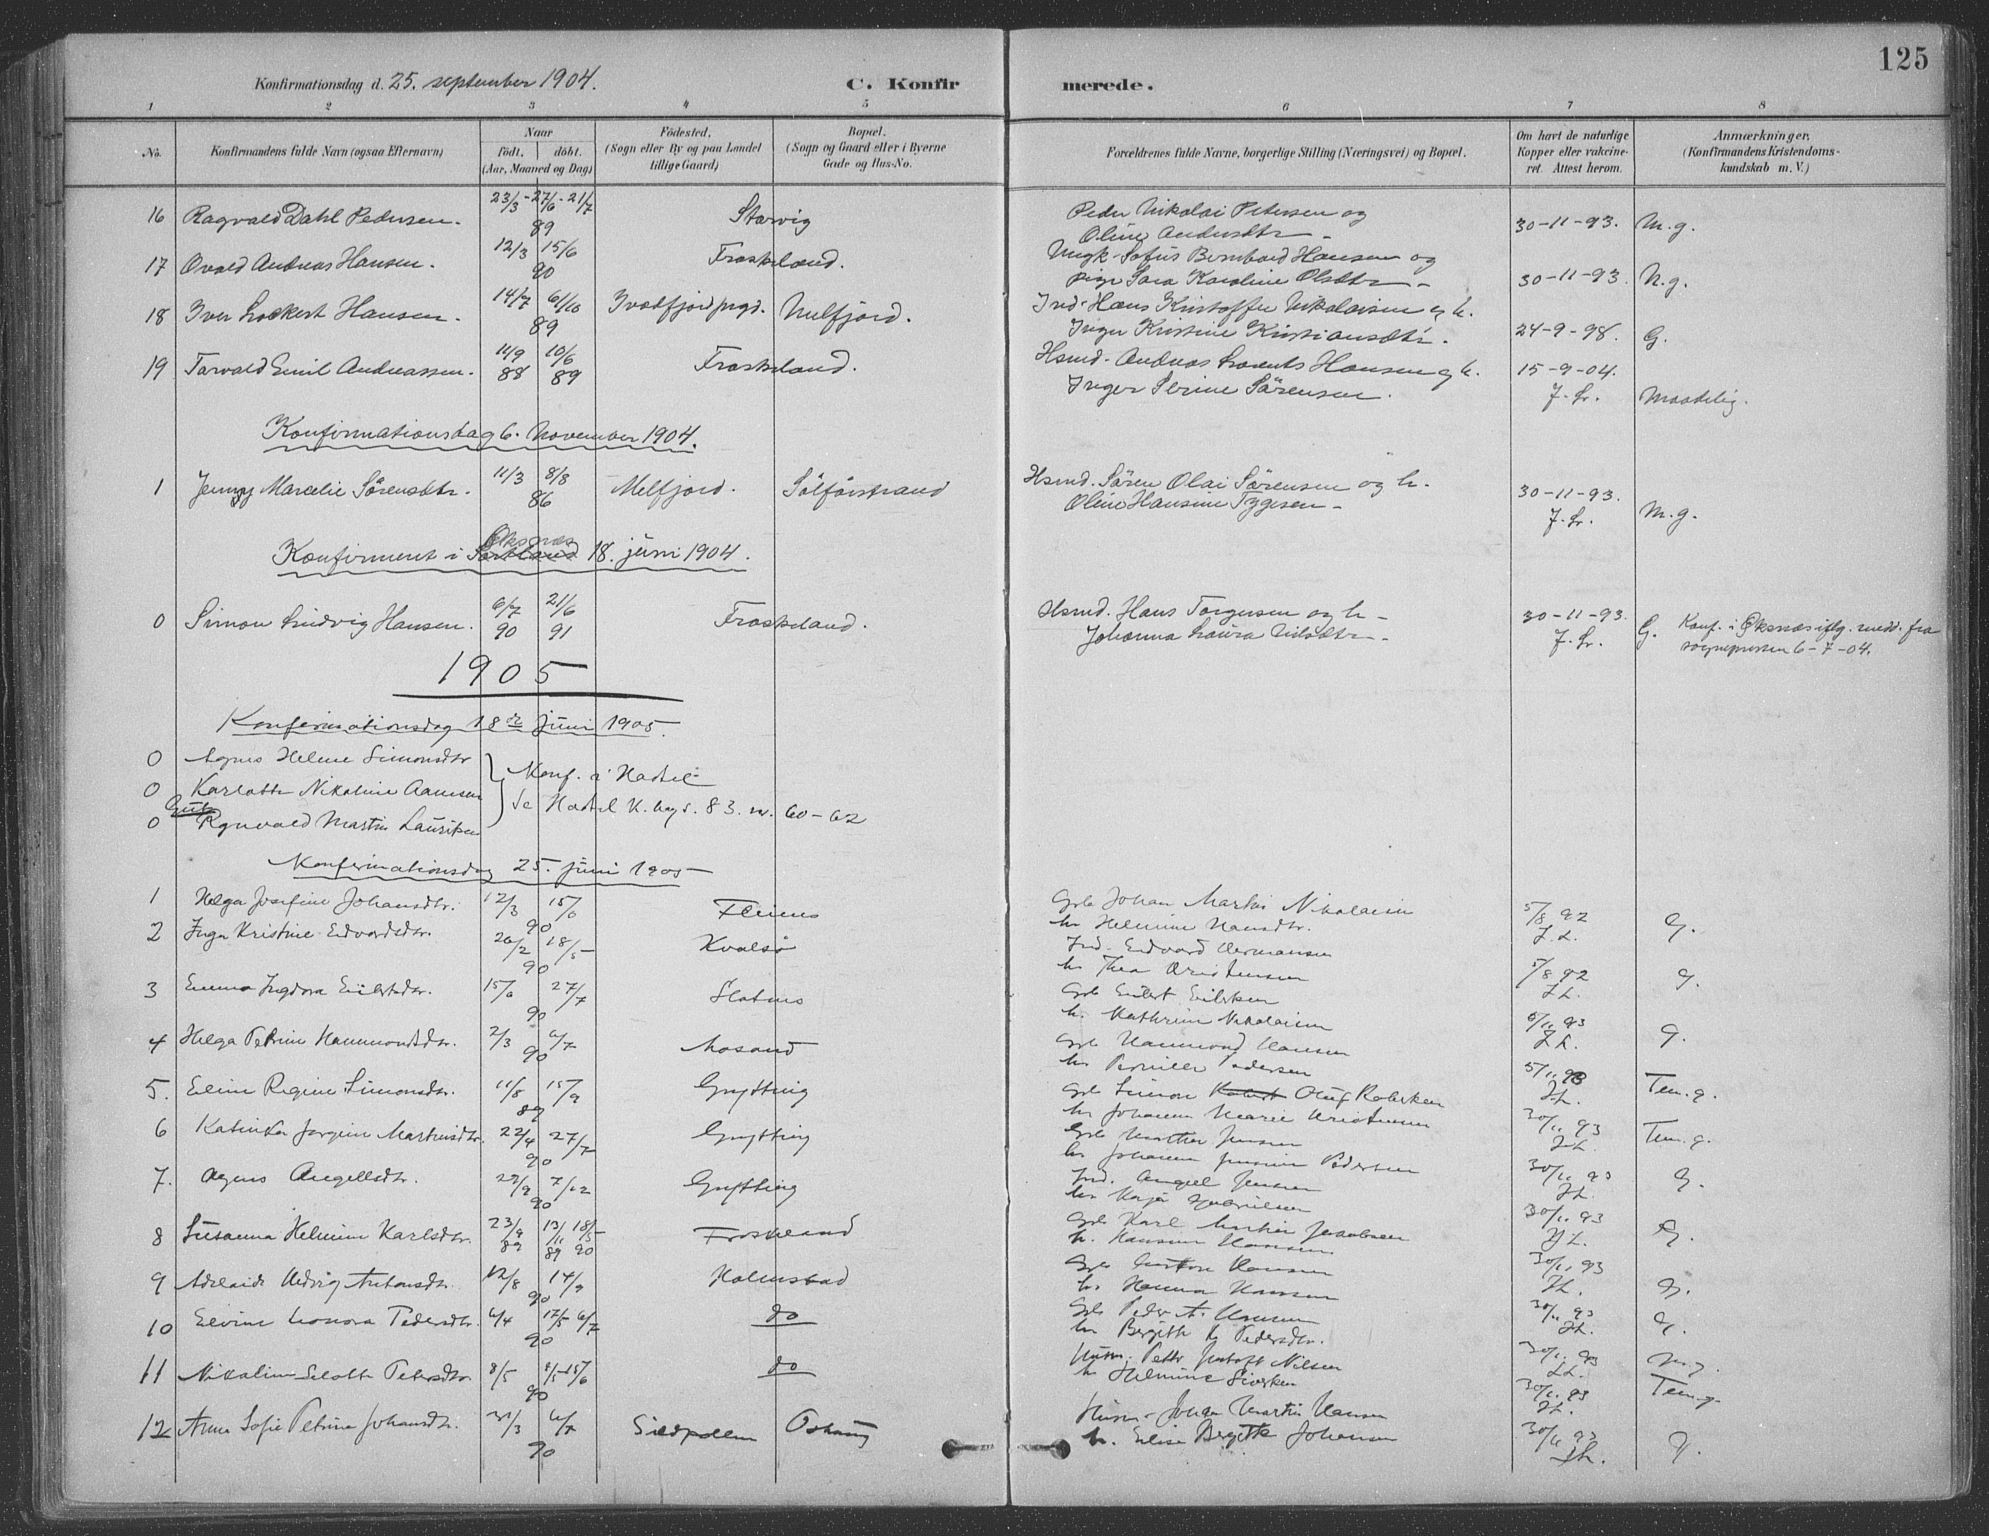 125
Konfirmationsdag d. 25. september 1904.
C. Konfir merede.
1 2 3 4 5 6 7 8
No.
Konfirmandens fulde Navn (ogsaa Efternavn)
Naar
født, døbt.
(Aar, Maaned og Dag)
Födested,
(Sogn eller By og paa Landet
tillige Gaard)
Bopæl.
(Sogn og Gaard eller i Byerne
Gade og Hus-No.
Forældrenes fulde Navne, borgerlige Stilling (Næringsvei) og Bopæl.
Om havt de naturlige
Kopper eller vakcine-
ret. Attest herom.
Anmærkninger,
(Konfirmandens Kristendoms-
kundskab m. V.)
16 Ragvald Dahl Pedersen. 23/3 - 27/6 - 21/7 89 Starvig Peder Nikolai Petersen og
Oline Andersdtr - 30-11-93. M.g.
17 Ovald Andreas Hansen. 12/3 15/6 90 Froskeland. Ungk. Sofus Bernhard Hansen og
pige Sara Karoline Olsdtr - 30-11-93. N.g.
18 Iver Lockert Hansen. 14/7 6/10 89 Kvædfjord prgd. Melfjord. Ind. Hans Kristoffer Nikolaisen og h.
Inger Kristine Kristiansdtr. 24-9-98. G.
19 Torvald Emil Andreassen. 11/9 88 10/6 89 Froskeland. Hsmd. Andreas Lorents Hansen og h.
Inger Serine Sørensen. 15-9-04.
J. Lr. Maadelig.
Konfirmationsdag 6. November 1904.
1 Jenny Marcelie Sørensdtr. 11/3 8/8 86 Melfjord. Sølførstrand Hsmd. Søren Olai Sørensen og h.
Oline Hansine Tygesen - 30-11-93.
J. Lr. M.g.
Øksnæs
Konfirmeret i Sortland 18. juni 1904.
0 Simon Ludvig Hansen. 6/7 90 21/6 91 Froskeland. Hsmd. Hans Torgersen og h -
Johanna Laura Nilsdtr - 30-11-93.
J. Lr. G. Konf. i Øksnæs iflg. medd. fra
sognepresten 6-7-04.
1905
Konfirmationsdag 18de juni 1905.
0 Agnes Helene Simonsdtr
0 Karlotte Nikoline
0 Martin Lauritsen
Konf. i Hadsel
Se Hadsel K. bog s. 83. nr. 60-62
Konfirmationsdag 25. juni 1905
1 Helga Josefine Johansdtr. 12/3 15/6 90 Fleines Grb Johan Martin Nikolaisen
h. Helmine Hansdtr. 5/8 92
J. L. G.
2 Inga Kristine Edvardsdtr. 26/2 18/5 90 Kvalsø Ind. Edvard Hermansen
h. Thea Kristensen 5/8 92
J. L. G.
3 Emma Ingdora Eilertsdtr. 15/6 27/7 90 Slotnes Grb Eilert Eilertsen
h. Kathrine Nikolaisen 6/11 93
J. L. G.
4 Helga Petrine Hammondsdtr. 2/3 6/7 90 Aasand Grb Hammond Hansen
h. Pernille Pedersen 5/11 93
J. L. Tem. g.
5. Eline Regine Simonsdtr. 11/8 15/9 89 Grytting Grb Simon Robert Oluf Robertsen
h. Johanna Marie Kristensen 30/11 93
J. L. Tem. g.
6 Katinka Jørgine Martinsdtr. 22/4 27/7 90 Grytting Grb Martin Jensen
h. Johanna Pedersen 30/11 93
J. L. G.
7. Agnes Angellsdtr. 7/12 90 Grytting Ind. Angel Jensen
h. Kaja 30/11 93
J. L. G.
8 Susanna Helmine Karlsdtr. 23/9 89 13/11 89 18/5 90 Froskeland Grb Karl Martin Jakobsen
h. Hansine Hansen 30/11 93
J. L. G.
9 Adelaide Hedvig Antonsdtr. 12/8 14/9 90 Holmstad Grb Hansen
h. Hanna Hansen 30/11 93
J. L. G.
10 Elvine Leonora Pedersdtr. 6/4 17/5 6/7 90 do Grb Peder A. Hansen
h. Bergitte Pedersdtr. 30/11 93
J. L. M.g.
11 Nikoline Petersdtr. 8/5 15/6 90 do Husm. Petter Nilsen
h. Helmine Sivertsen 30/11 93
J. L. Tem. g.
12 Anna Sofie Petrine Johansdtr. 31/3 6/7 90 Sildpollen Oshaug Husm. Johan Martin Hansen
h. Elise Bergitte Johansen 30/11 93
J. L. G.